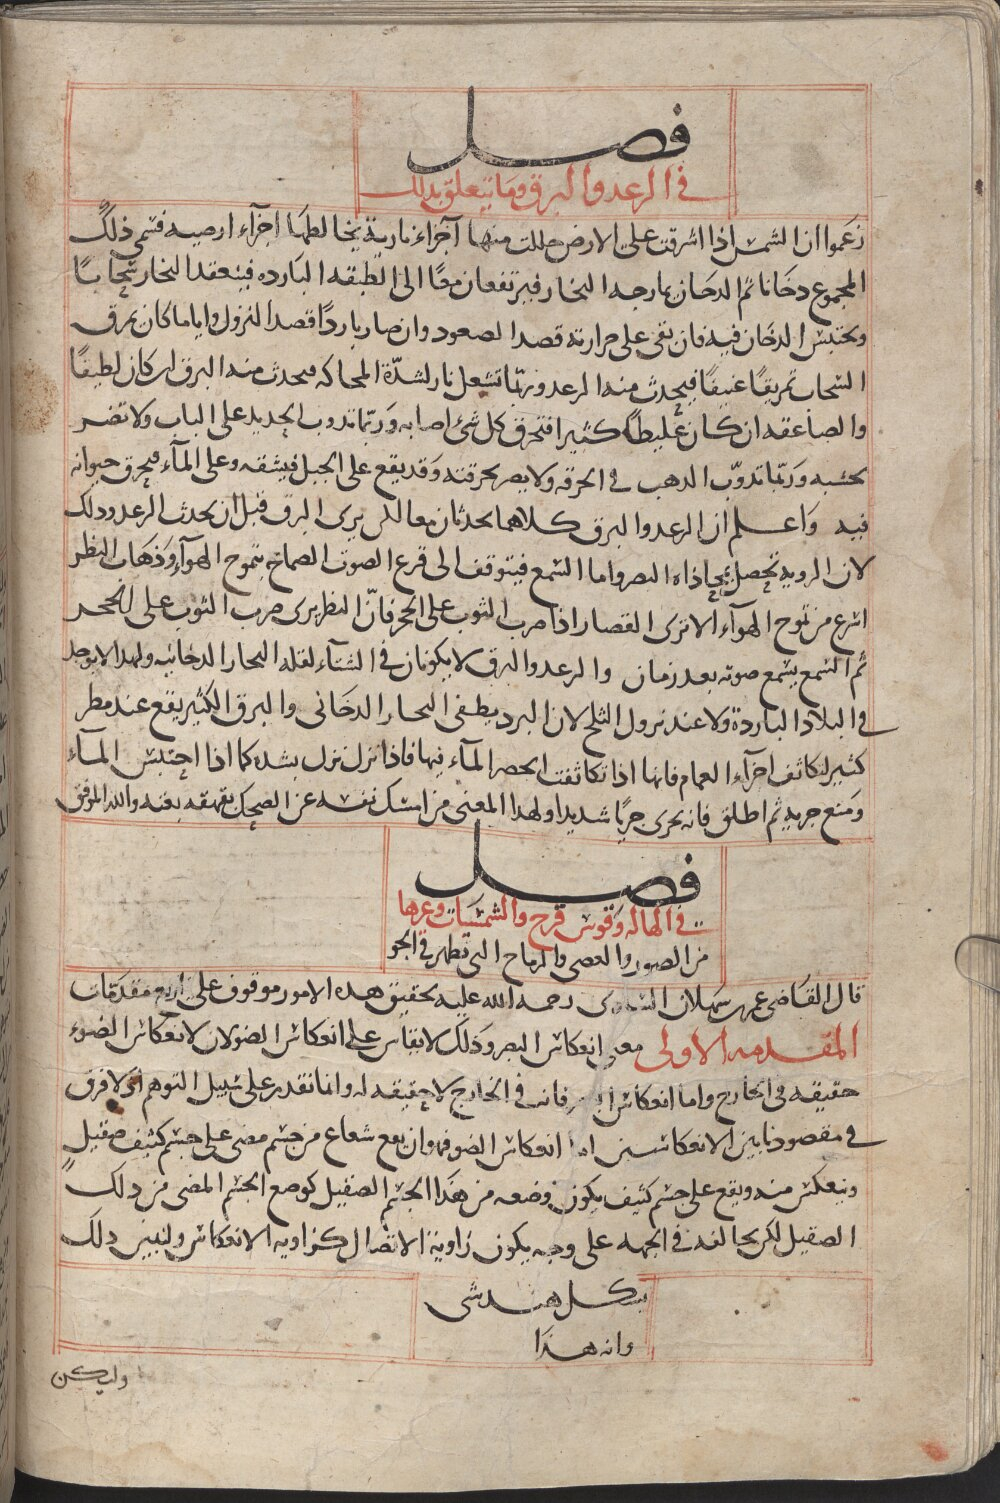 فصل
في الرعد والبرق وما يتعلق بذلك
زعموا ان الشمس اذا اشرقت على الارض حللت منها اجزاء نارية يخالطها اجزاء ارضيه فتسمى ذلك
المجموع دخانا ثم الدخان يمازجه البخار فيرتفعان معًا الى الطبقه البارده فينعقد البخار سحابًا
ويحتبس الدخان فيه فان بقى على حرارته قصد الصعود وان صار باردًا قصد النزول واياما كان يمزق
السحاب تمزيقًا عنيفًا فيحدث منه الرعد وربما تشعل نار لشدّة المحاكه فيحدث منه البرق ان كان لطيفًا
والصاعقه ان كان غليطًا كثيرا فتحرق كل شئ اصابه وربما تدوب الحديد على الباب ولا تضر
بخشبه وربما تدوّب الدهب في الخرقه ولا يضر بخرقته وقد يقع على الجبل فيشقه وعلى المآء فيحرق حيوانه
فيه واعلم ان الرعد والبرق كلاهما يحدثان معا لكن يرى البرق قبل ان يحدث الرعد ودلك
لان الرويه تحصل بمحاذاه البصر واما السمع فيتوقف الى قرع الصوت الصماخ بتموج الهوآء وذهاب النظر
اسرع من تموج الهوآء الا ترى القصار اذا ضرب الثوب على الحجر فانّ النظر يرى ضرب الثوب على الحجر
ثم السمع يسمع صوته بعد زمان والرعد والبرق لا يكونان في الشتآء لقله البخار الدخانيه ولهدا لا يوجد
في البلاد الباردة ولا عند نزول الثلج لان البرد يطفى البخار الدخانى والبرق الكثير يقع عند مطر
كثير لتكاثف اجزآء الغمام فانها اذا تكاثفت انحصر المآء فيها فاذا نزل نزل بشده كما اذا احتبس المآء
ومنع جريه ثم اطلق فانه يجرى جريًا شديدا ولهدا المعنى من امسك نفسه عن الضحك يقهقه بغته والله الموفق
فصل
في الهاله وقوس قزح والشمسيات وغيرها
من الصور والعصى والرماح التى تظهر في الجو
قال القاضى عمر بن سهلان الساوى رحمه الله عليه تحقيق هده الامور موقوف على اربع مقدمات
المقدمه الاولى معنى انعكاس البصر وذلك لا يقاس على انعكاس الضو لان لانعكاس الضوء
حقيقه فى الخارج واما انعكاس البصر فانه في الخارج لا حقيقه له وانما نقدر على سبيل التوهم اولا فرق
في مقصودنا بين الانعكاسين اما انعكاس الضو فهو ان يقع شعاع من جسم مضى على جسم كثيف صقيل
وينعكس منه ويقع على جسم كثيف يكون وضعه من هذا الجسم الصقيل كوضع الجسم المضى من دلك
الصقيل لكن يخالفه في الجهه على وجه يكون زاوية الاتصال كزاويه الانعكاس ولنبين دلك
بشكل هندسى
وانه هذا
وليكن